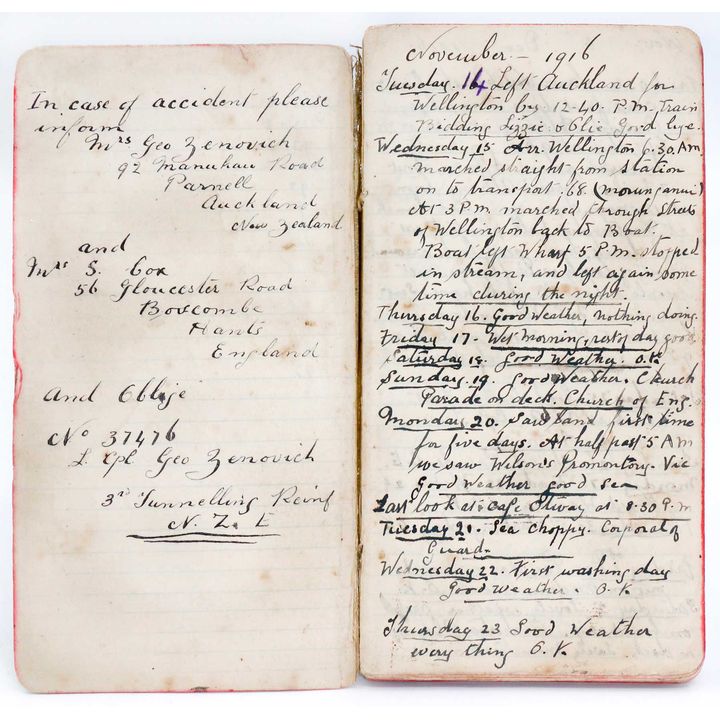 In case of accident please
inform
Mrs Geo Zenovich
92 Manukau Road
Parnell
Auckland
New Zealand
and
Mrs S. Cox
56 Gloucester Road
Boscombe
Hants
England
And Oblige
No 37476
L. Cpl Geo Zenovich
3rd Tunnelling Reinf
N. Z. E
November – 1916
Tuesday. 14 Left Auckland for
Wellington by 12-40. P.M. Train
Bidding Lizzie & Olie Good bye.
Wednesday 15 Arr. Wellington 6.30. A.M.
marched straight from station
on to transport. 68. (Maunganui)
At 3 P.M. marched through streets
of Wellington back to Boat.
Boat left Wharf 5 P.M. stopped
in stream, and left again some
time during the night.
Thursday 16. Good Weather, nothing doing.
Friday 17. Wet Morning, rest of day good.
Saturday 18. Good Weather. O.K.
Sunday. 19. Good Weather. Church
Parade on deck. Church of Eng.
Monday 20. Saw land first time
for five days. At half past 5 A M
we saw Wilsons Promontory. Vic
Good Weather good sea
Last look at Cape Otway at 8.30 P.M
Tuesday 21. Sea choppy. Corporal of
Guard.
Wednesday 22. First washing day
Good Weather. O. K.
Thursday 23 Good Weather
every thing O. K.